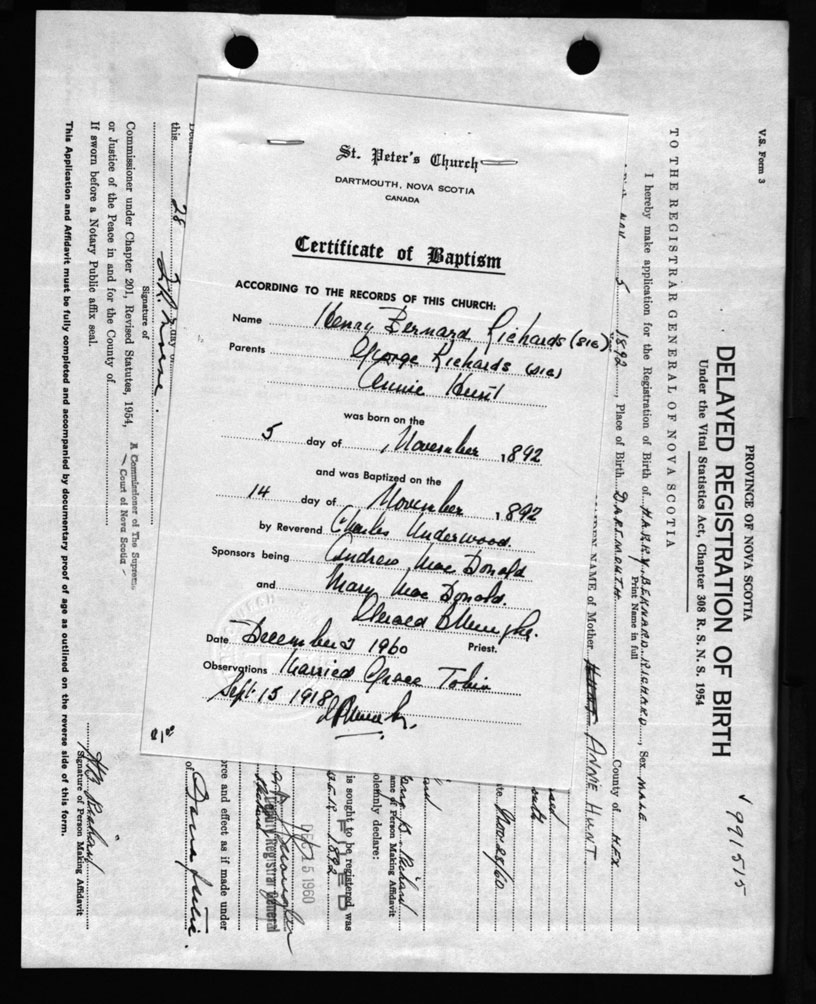 St. Peter's Church
DARTMOUTH, NOVA SCOTIA
CANADA
Certificate of Baptism
ACCORDING TO THE RECORDS OF THIS CHURCH:
Name Henry Bernard Richards (SIC)
Parents George Richards (SIC)
Annie Hunt
was born on the
5 day of November, 1892
and was Baptized on the
14 day of November, 1892
by Reverend Charles Underwood.
Sponsors being Andrew Mac Donald
and Mary Mac Donald.
Priest.
Date December 2 1960
Observations Married Grace Tobin
Sept. 15 1918
V.S. Form 3
PROVINCE OF NOVA SCOTIA
DELAYED REGISTRATION OF BIRTH
Under the Vital Statistics Act, Chapter 308 R. S. N. S. 1954
991515
TO THE REGISTRAR GENERAL OF NOVA SCOTIA
I hereby make application for the Registration of Birth of HARRY BERNARD RICHARD, Sex MALE
Print Name in full
NOV 5 1892, Place of Birth DARTMOUTH County of HFX
NAME of Mother ANNIE HUNT
Nov 28/60
Name of Person Making Affidavit
solemnly declare:
is sought to be registered was
1892
FILED
DEC 15 1960
Deputy Registrar General
force and effect as if made under
this 28 day of
Signature of
Commissioner under Chapter 201, Revised Statutes, 1954,
or Justice of the Peace in and for the County of
If sworn before a Notary Public affix seal.
A Commissioner of The Supreme
Court of Nova Scotia
H B Richard
Signature of Person Making Affidavit
This Application and Affidavit must be fully completed and accompanied by documentary proof of age as outlined on the reverse side of this form.